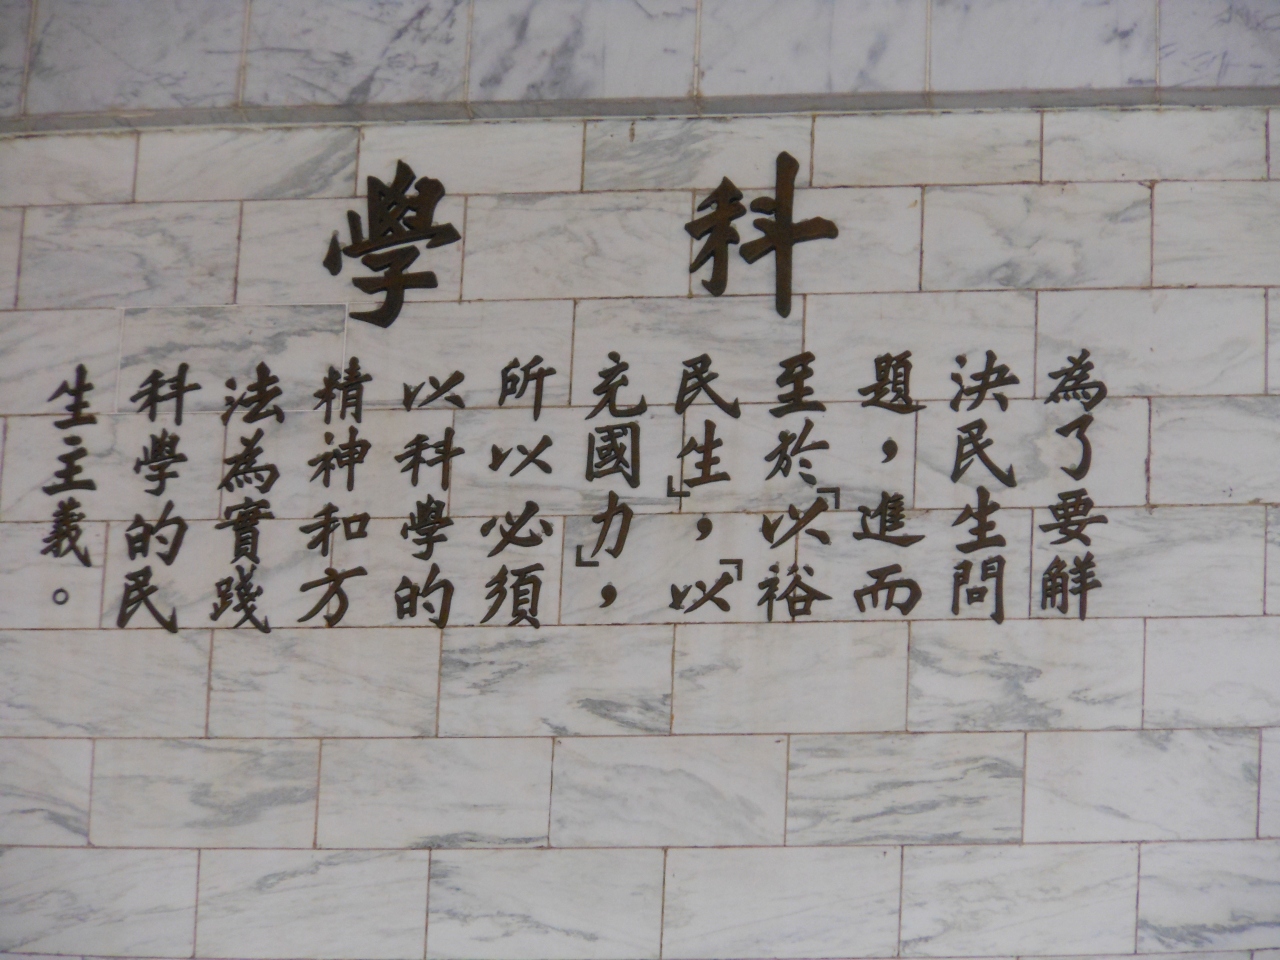 科學
為了要解
決民生問
題，進而
至於「以裕
民生」，「以
充國力」，
所以必須
以科學的
精神和方
法為實踐
科學的民
生主義。